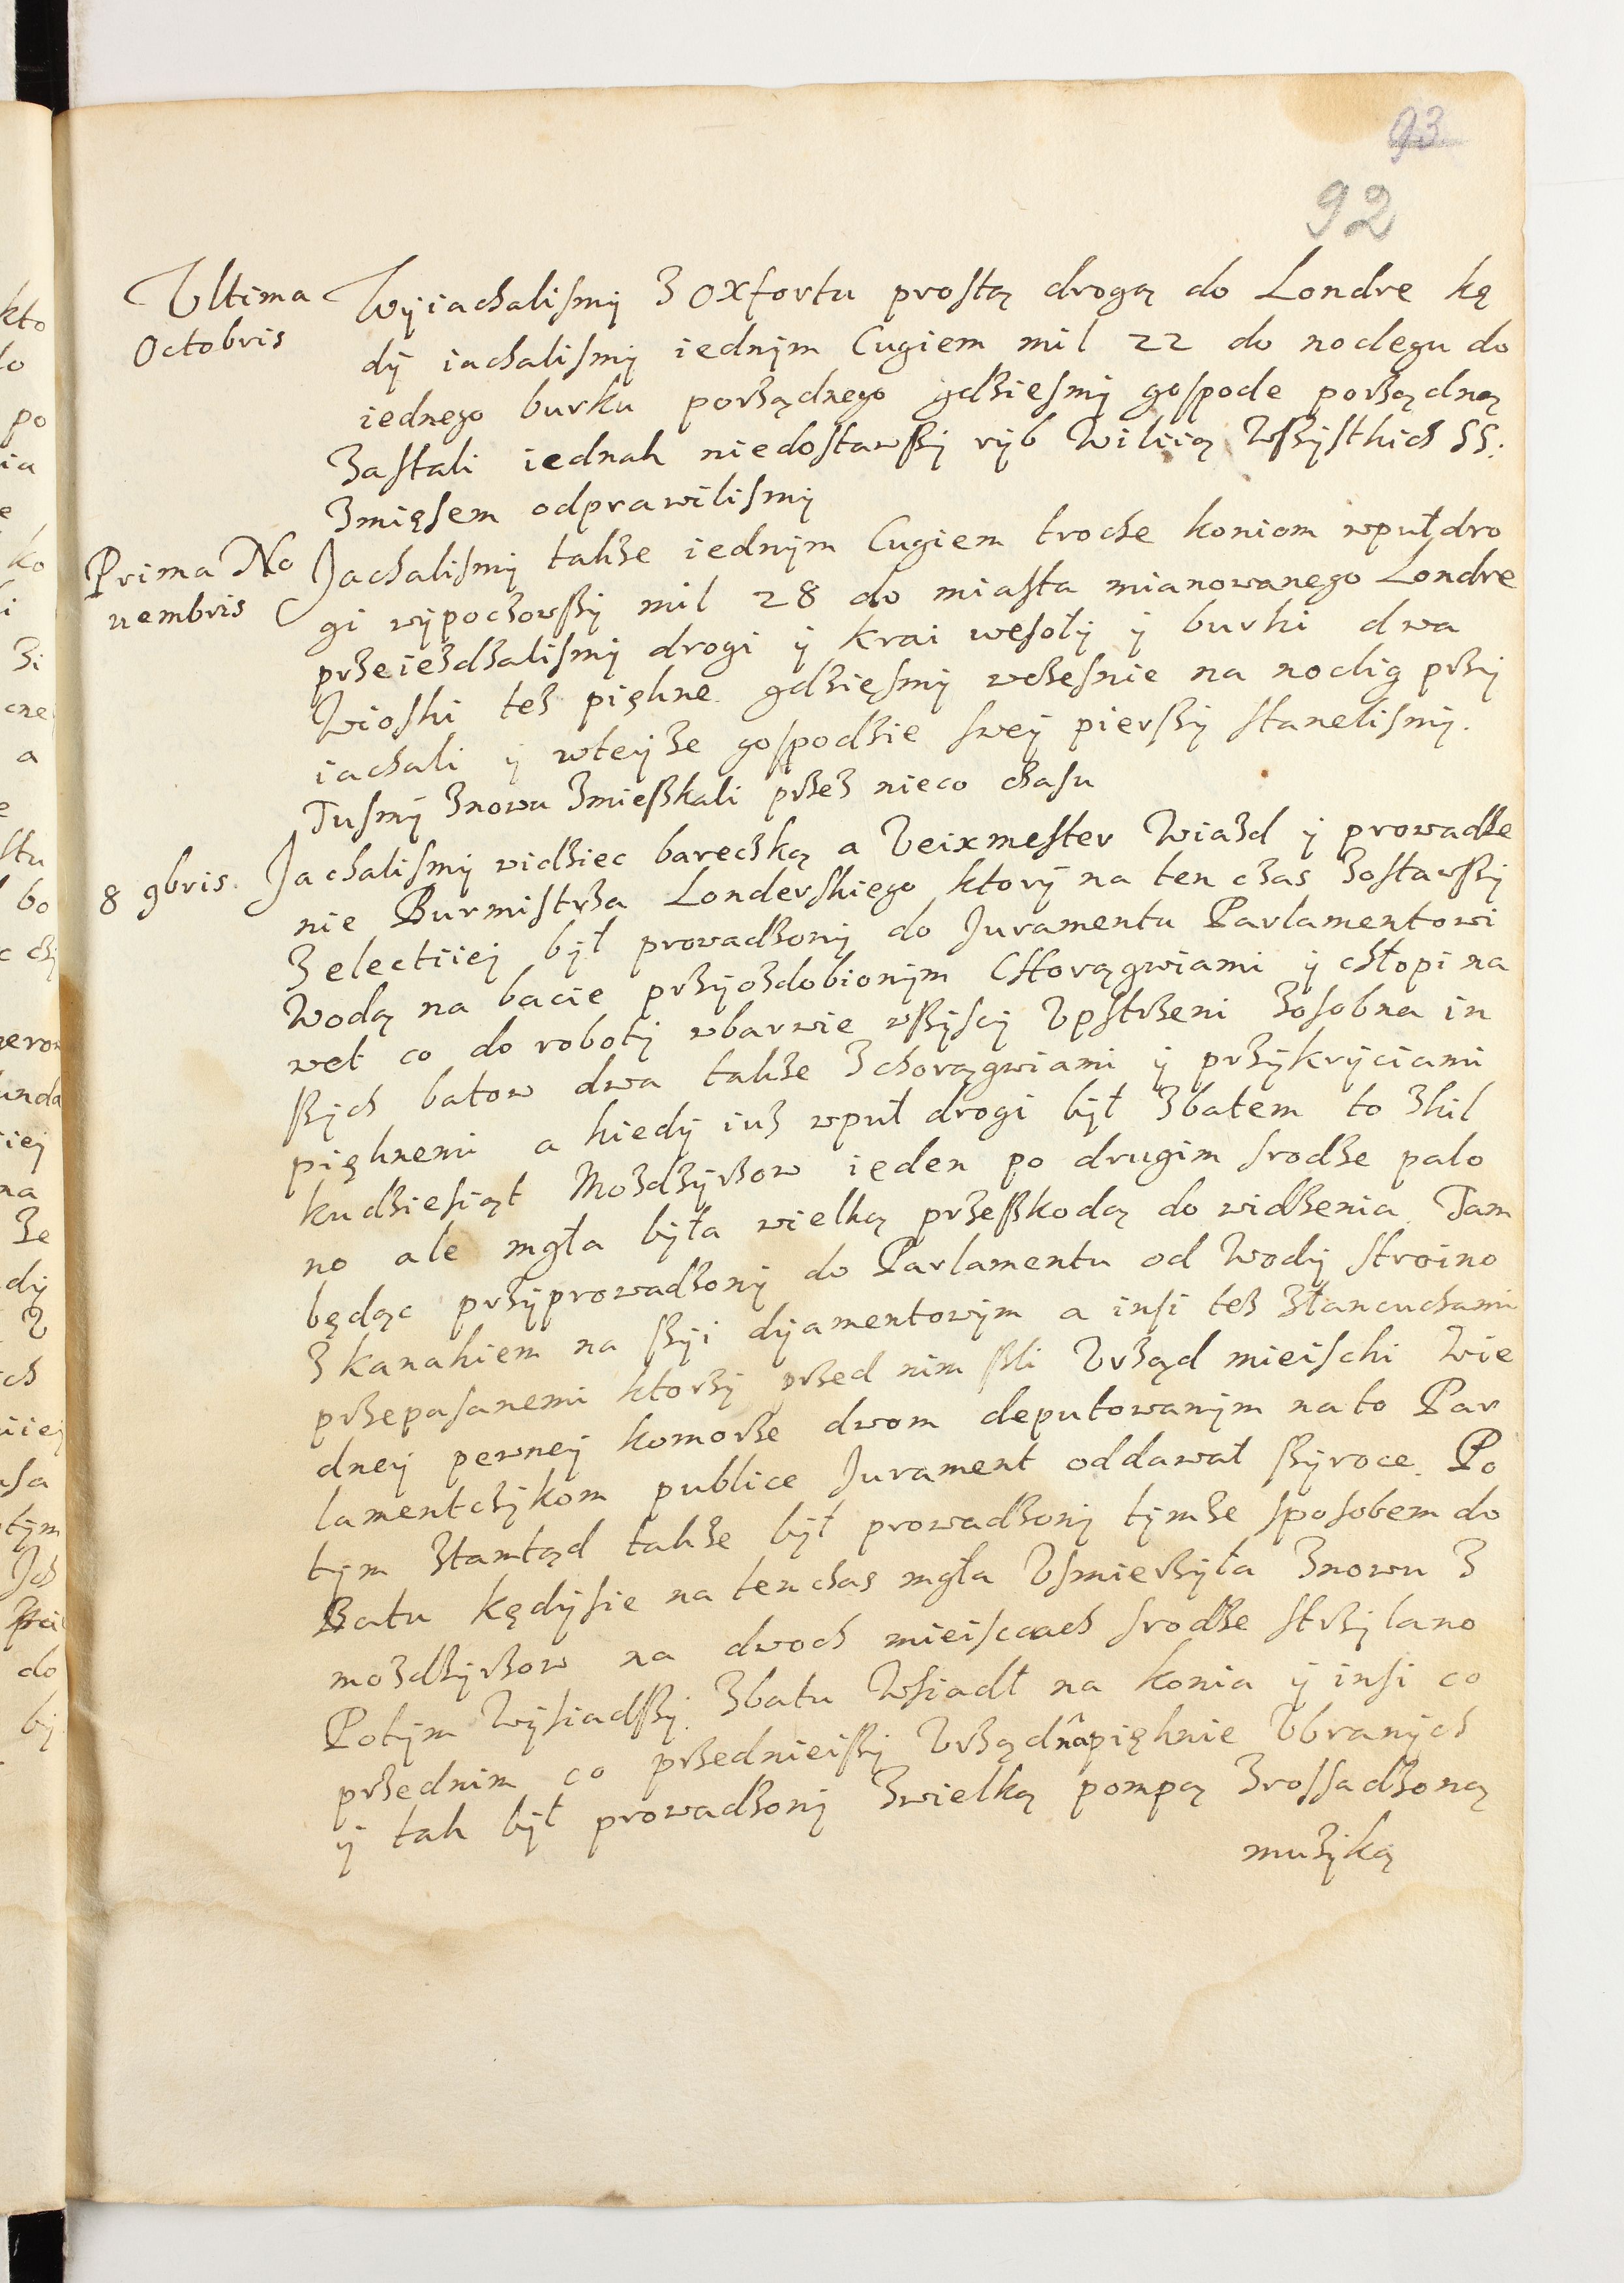 93
92
Vltima Wyiachalismy z oxfortu prostą drogą do Londre kę
Octobris dy iachalismy iednym Cugiem mil 22 do noclegu do
iednego burku porządnego gdziesmy gospode porządną
zastali iednak niedostawszy ryb Wiliią Wszystkich SS:
zmięsem odprawilismy
Prima No Jachalismy takze iednym Cugiem troche koniom wpuł dro
uembris gi wypochowszy mil 28 do miasta mianowanego Londre
przeiezdzalismy drogi y krai wesoły y burki dwa
Wioski tez piękne gdzięsmy wczesnie na noclig przy
iachali y wteyze gospodzie swey pierszy stanelismy.
Tusmy znowu zmieszkali przez nieco czasu
8 9bris. Jachalismy widziec bareczką a Veixmester Wiazd y prowadze
nie Burmistrza Londerskiego ktory na ten czas zostawszy
z electiiey był prowadzony do Juramentu Parlamentowi
Wodą na bacie przyozdobionym Chorągwiami y chłopi na
wet co do roboty wbarwie wszyscy Vpstrzeni zosobna in
szych batow dwa takze z chorągwiami y przykryciami
pięknemi a kiedy iuz wpuł drogi był zbatem to zkil
kudziesiąt Mozdzyrzow ieden po drugim srodze palo
no ale mgła była wielką przeszkodą do widzenia. Tam
będąc przyprowadzony do Parlamentu od Wody stroino
z kanakiem na szyi dyamentowym a insi tez złancuchami
przepasanemi ktorzy przed nim szli Vrząd mieiscki Wie
dney pewney komorze dwom deputowanym nato Par
lamentczykom publice Jurament oddawał szyroce. Po
tym ztamtąd takze był prowadzony tymze sposobem do
Batu kędysie na tenczas mgła Vsmierzyła znowu z
mozdzyrzow na dwoch mieisccach srodze strzylano
Potym Wysiadszy zbatu Wsiadł na konia y insi co
przednim co przednieiszy Vrząd na pięknie Vbranych
y tak był prowadzony zwielką pompą zrossadzoną
muzyką